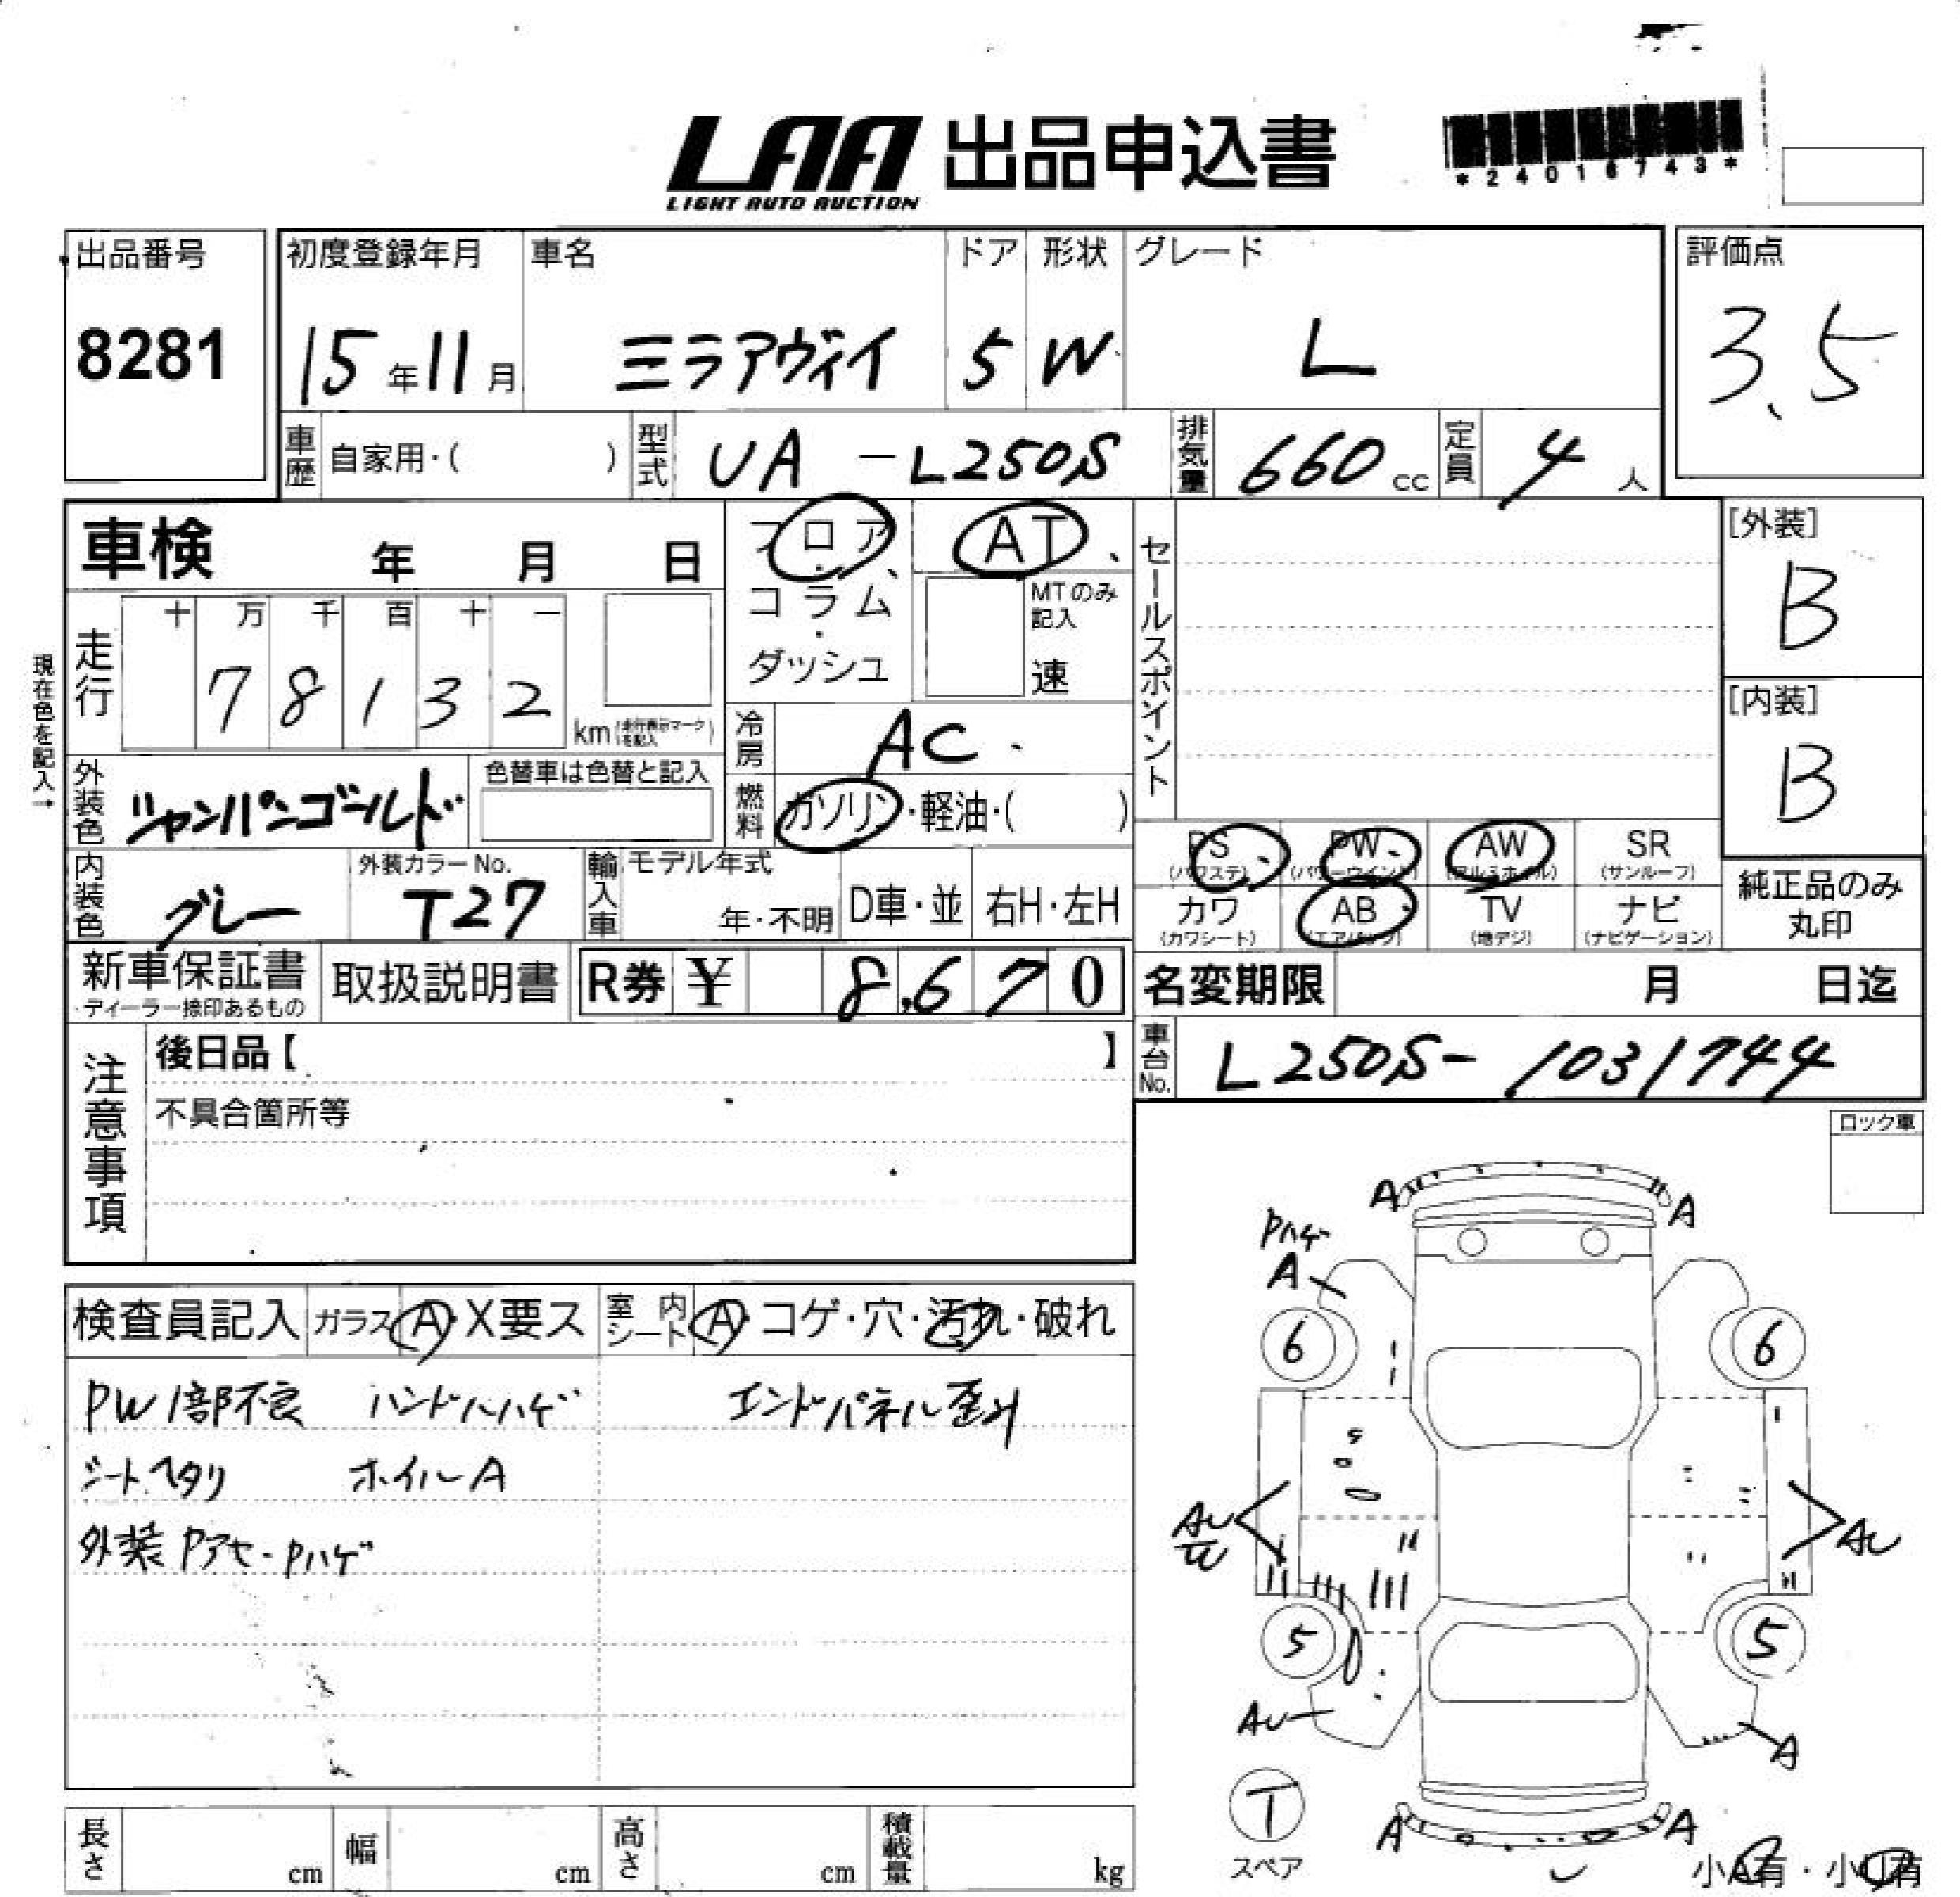 LAA 出品申込書
LIGHT AUTO AUCTION
*24016743*
出品番号 初度登録年月 車名 ドア 形状 グレード 評価点
8281 15年11月 ミラアヴィイ 5 W L 3.5
車歴 自家用・( ) 型式 UA-L250S 排気量 660cc 定員 4人
車検 年 月 日
フロア・コラム・ダッシュ
AT
MTのみ記入
速
セールスポイント
[外装]
B
[内装]
B
現在色を記入→
走行 十 万 千 百 十 一
7 8 1 3 2 km (走行表示マークを記入)
冷房 AC
外装色 シャンパンゴールド 色替車は色替と記入
燃料 ガソリン・軽油・( )
内装色 グレー 外装カラーNo. T27
輸入車 モデル年式 年・不明 D車・並 右H・左H
PS (パワステ) PW (パワーウインド) AW (アルミホイル) SR (サンルーフ)
カワ (カワシート) AB (エアバック) TV (地デジ) ナビ (ナビゲーション)
純正品のみ丸印
新車保証書 ・ディーラー捺印あるもの 取扱説明書 R券 ¥ 8,670
名変期限 月 日迄
車台No. L250S-1031744
注意事項
後日品【 】
不具合箇所等
ロック車
検査員記入 ガラス A・X要ス 室内シート A・コゲ・穴・汚れ・破れ
PW1部不良 ハンドルハゲ エンドパネル歪み
シートヘタリ ホイルA
外装Pアセ・Pハゲ
A A
Pハゲ
A
6 6
AU AU
5 5
AU A
T
スペア
A A
小A有・小U有
長さ cm 幅 cm 高さ cm 積載量 kg